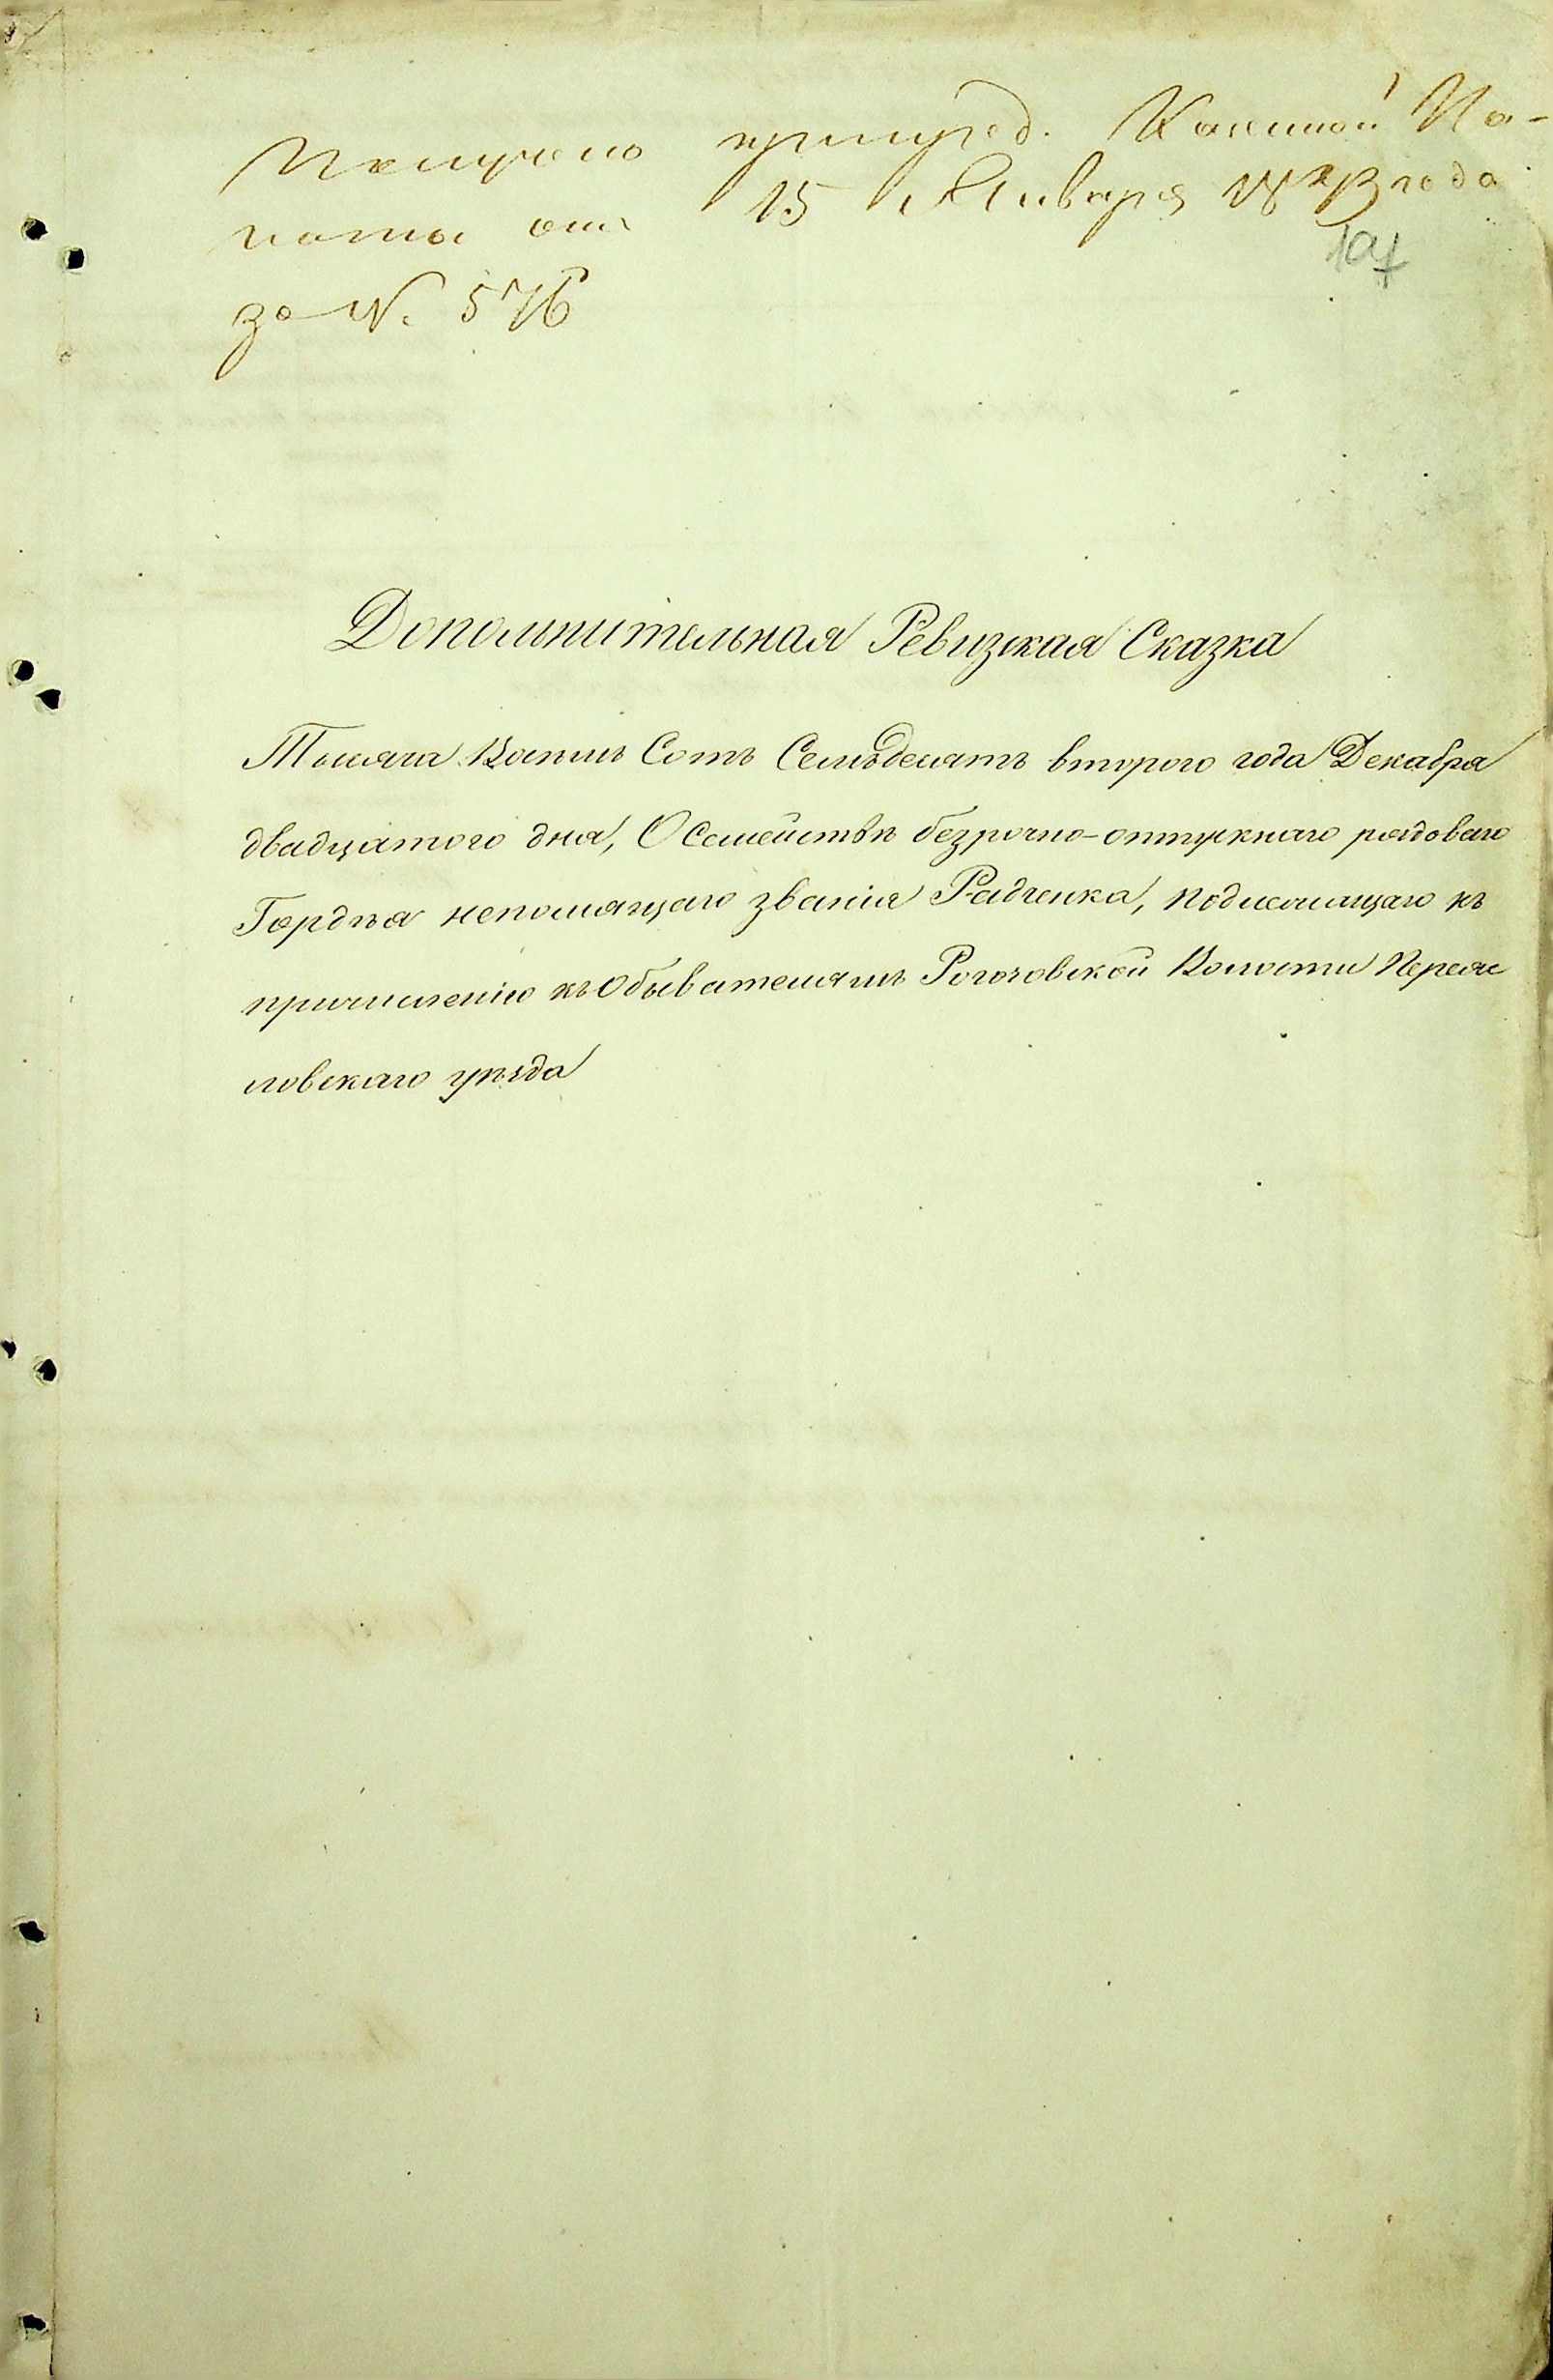 Получено при пред. Казенной Па-
латы отъ 15 Января 1873 года
за N. 576
Дополнительная Ревизская Сказка
Тысяча Восемь Сотъ Семьдесятъ втораго года Декабря
двадцатого дня, О Семействѣ безрочно-отпускнаго рядоваго
Гордѣя непомящаго званія Радченка, подлежащаго къ
причисленію къ Обывателямъ Рогозовской Волости Переяс
ловскаго уѣзда